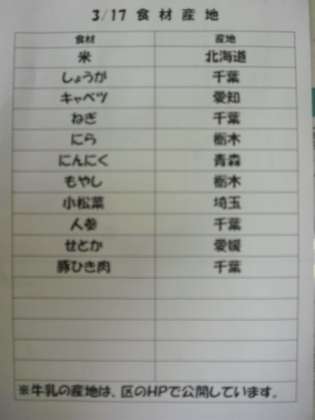 3/17 食材産地
食材 産地
米 北海道
しょうが 千葉
キャベツ 愛知
ねぎ 千葉
にら 栃木
にんにく 青森
もやし 栃木
小松菜 埼玉
人参 千葉
せとか 愛媛
豚ひき肉 千葉
※牛乳の産地は、区のHPで公開しています。